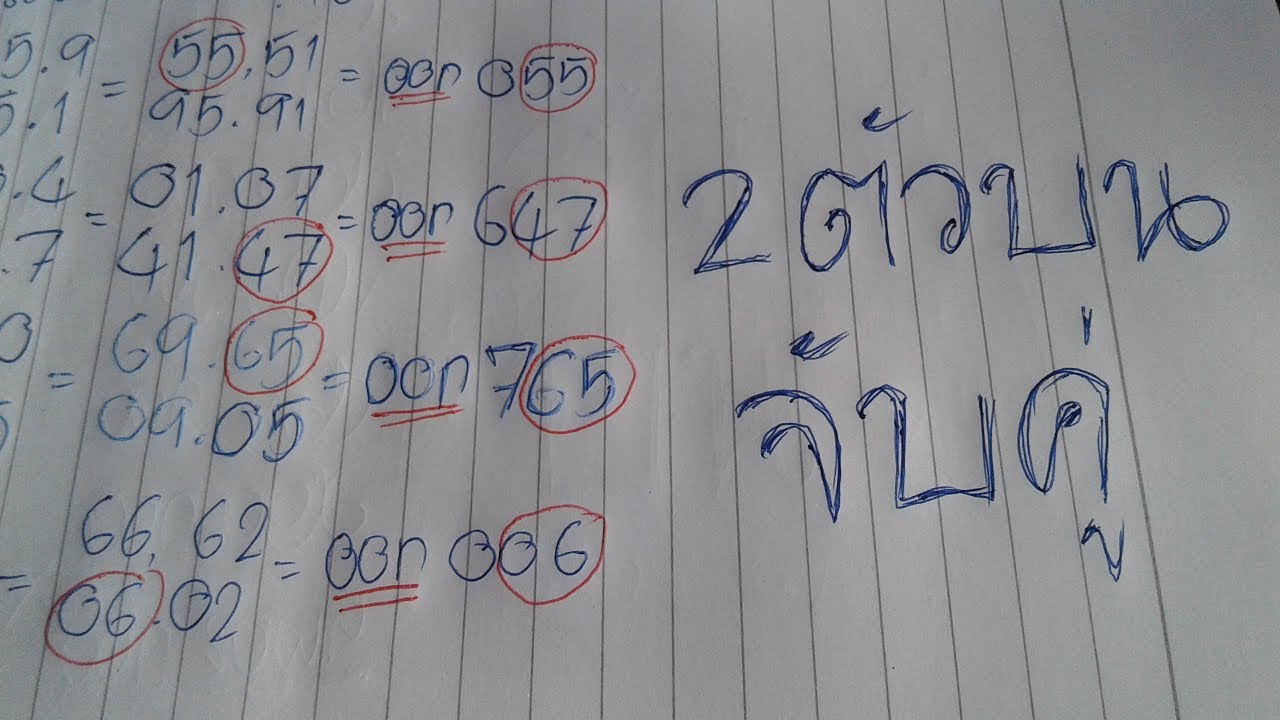 5.9 = 55.51 = ออก 055
5.1 95.91
.4 = 01.07 = ออก 647
.7 41.47
0 = 69.65 = ออก 765
5 09.05
= 66.62 = ออก 006
06.02
2ตัวบน
จับคู่